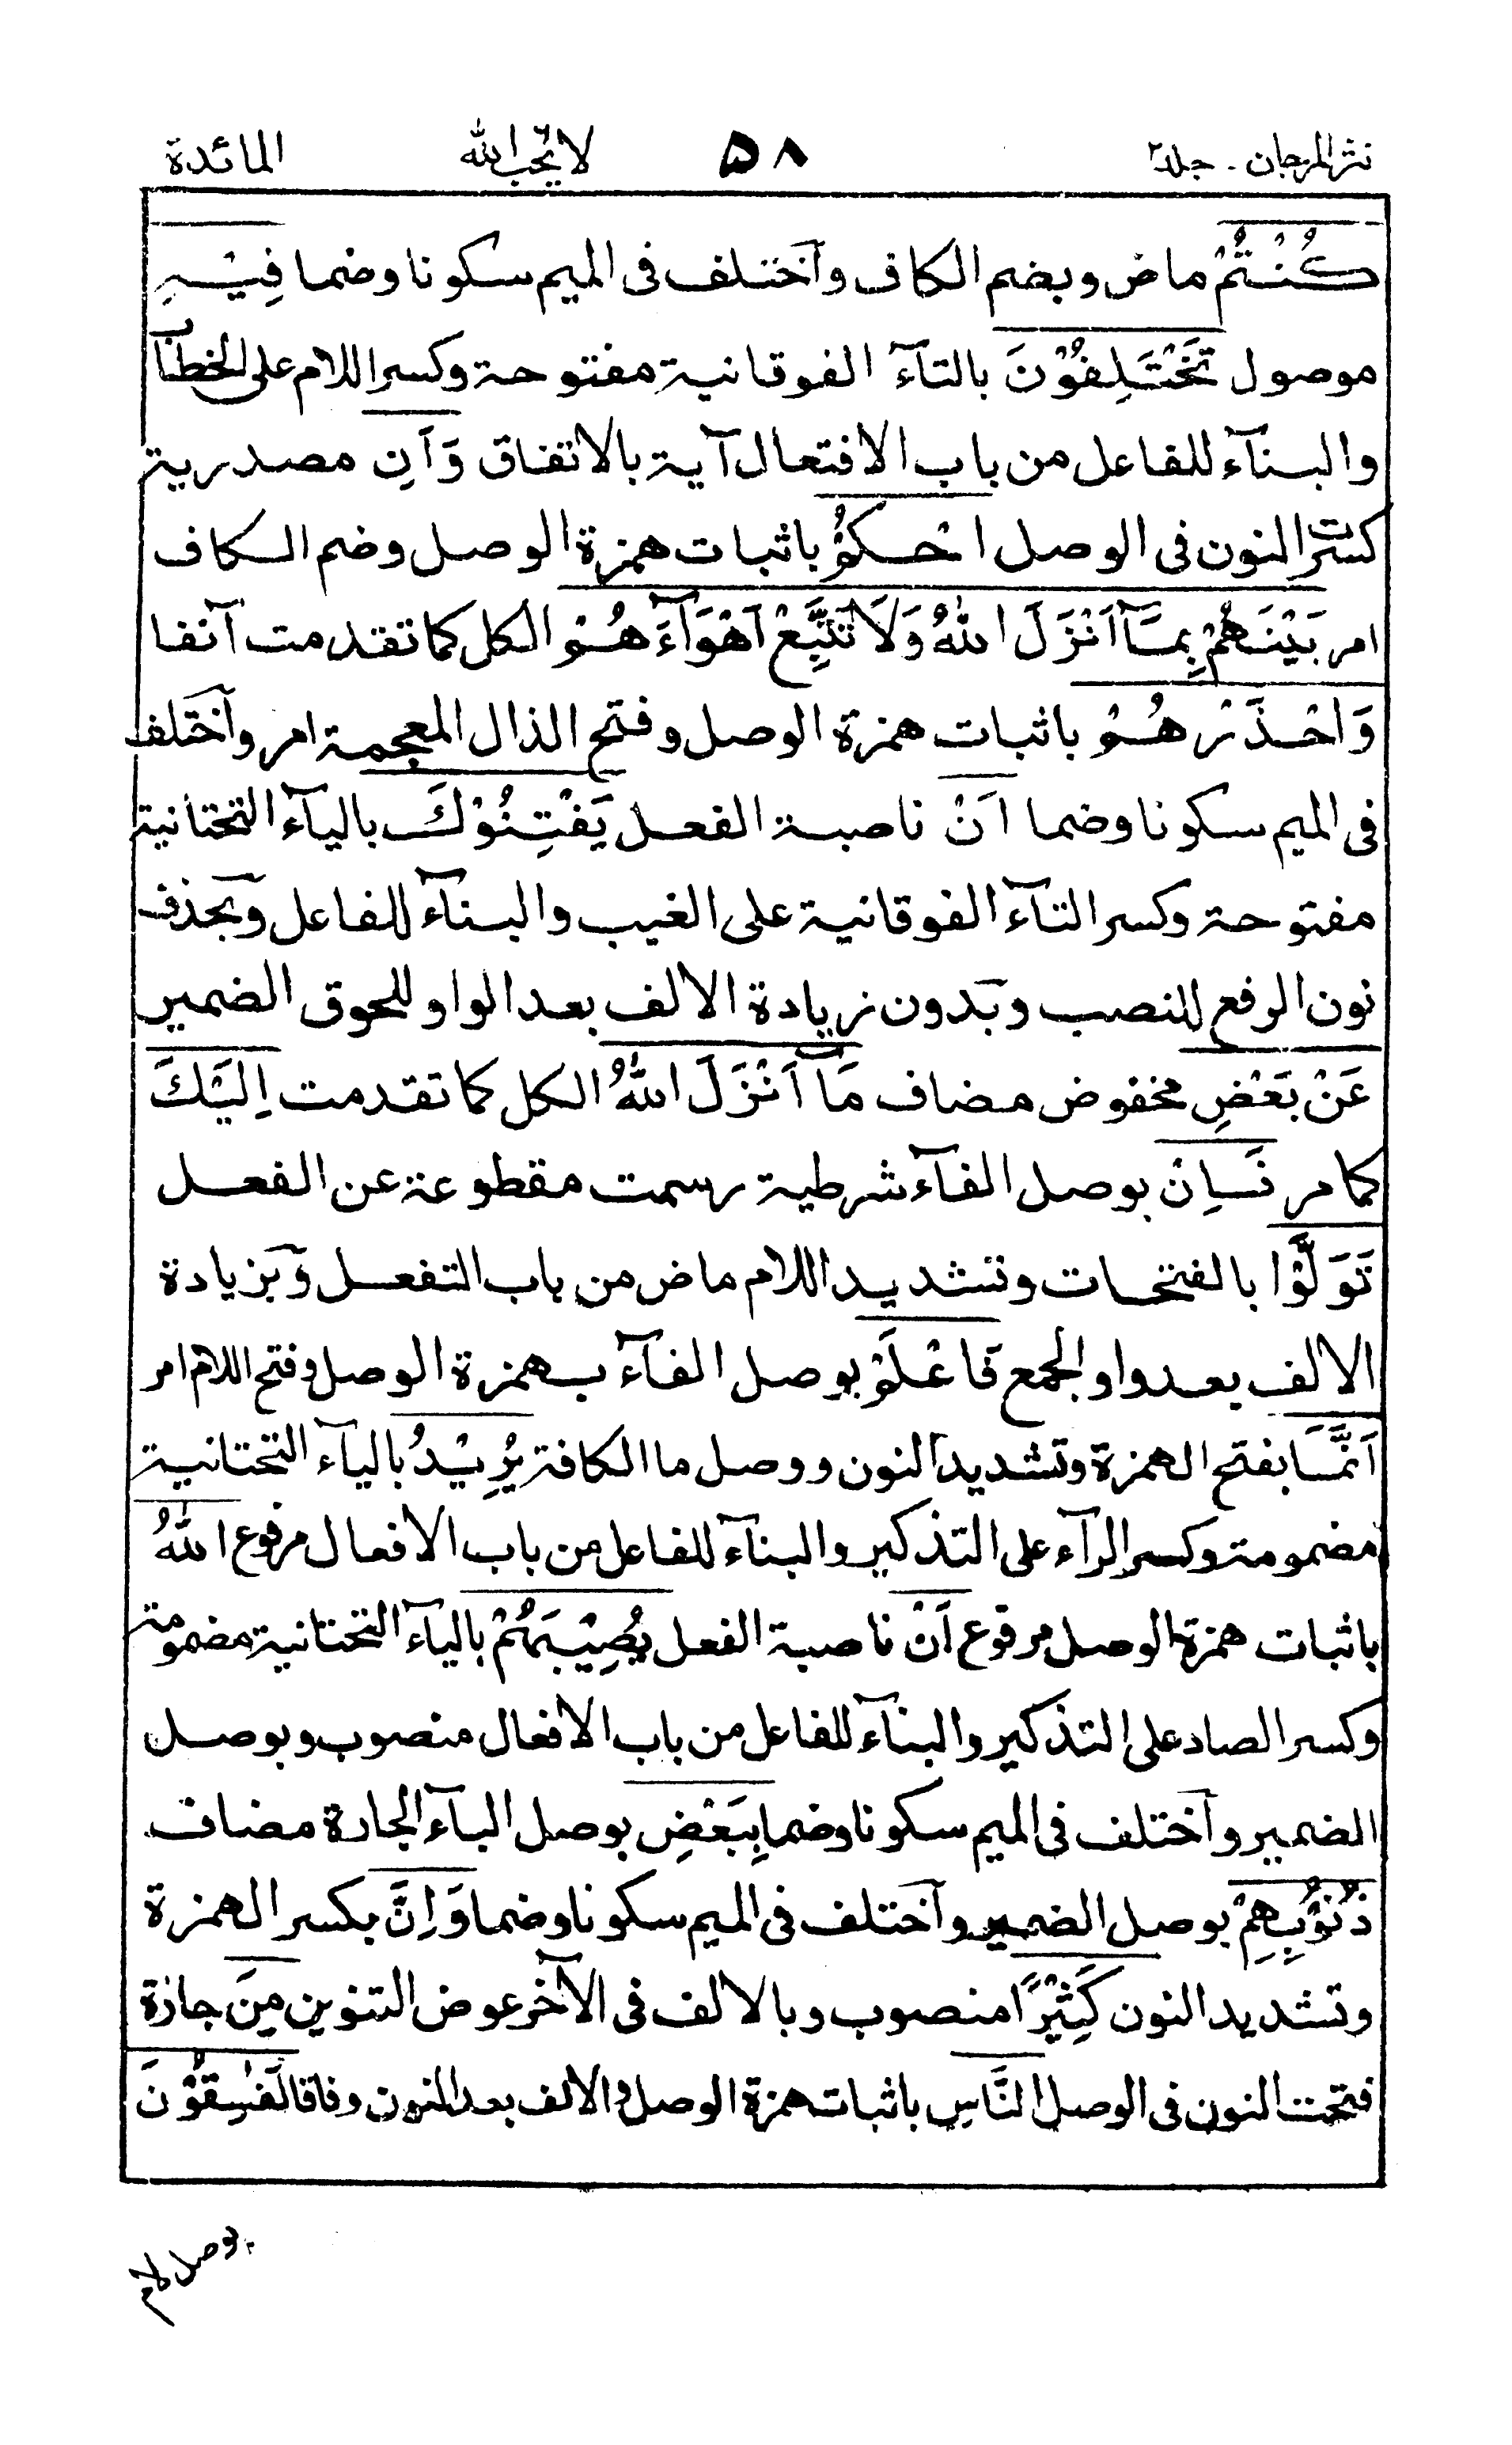 نثر المرجان - جلد ٢ ٥٨ لا يحب الله المائدة
كُنْتُمْ ماض وبضم الكاف وآختلف فى الميم سكونا وضما فِيْهِ
موصول تَخْتَلِفُوْنَ بالتآء الفوقانية مفتوحة وكسر اللام على الخطاب
والبنآء للفاعل من باب الافتعال آية بالاتفاق وَاَنِ مصدرية
كسرت النون فى الوصل احْكُمْ باثبات همزة الوصل وضم الكاف
امر بَيْنَهُمْ بِمَآ اَنْزَلَ اللهُ وَلَا تَتَّبِعْ اَهْوَآءَهُمْ الكل كما تقدمت آنفا
وَاحْذَرْهُمْ باثبات همزة الوصل وفتح الذال المعجمة امر وآختلف
فى الميم سكونا وضما اَنْ ناصبة الفعل يَفْتِنُوْكَ باليآء التحتانية
مفتوحة وكسر التآء الفوقانية على الغيب والبنآء للفاعل وبحذف
نون الرفع للنصب وبدون زيادة الالف بعد الواو للحوق الضمير
عَنْ بَعْضِ مخفوض مضاف مَآ اَنْزَلَ اللهُ الكل كما تقدمت اِلَيْكَ
كما مر فَاِنْ بوصل الفآء شرطية رسمت مقطوعة عن الفعل
تَوَلَّوْا بالفتحات وتشديد اللام ماض من باب التفعل وبزيادة
الالف بعد واو الجمع فَاعْلَمْ بوصل الفآء بهمزة الوصل وفتح اللام امر
اَنَّمَا بفتح الهمزة وتشديد النون ووصل ما الكافة يُرِيْدُ باليآء التحتانية
مضمومة وكسر الرآء على التذكير والبنآء للفاعل من باب الافعال مرفوع اللهُ
باثبات همزة الوصل مرفوع اَنْ ناصبة الفعل يُصِيْبَهُمْ باليآء التحتانية مضمومة
وكسر الصاد على التذكير والبنآء للفاعل من باب الافعال منصوب وبوصل
الضمير وآختلف فى الميم سكونا وضما بِبَعْضِ بوصل البآء الجارة مضاف
ذُنُوْبِهِمْ بوصل الضمير وآختلف فى الميم سكونا وضما وَاِنَّ بكسر الهمزة
وتشديد النون كَثِيْرًا منصوب وبالالف فى الآخر عوض التنوين مِنَ جارة
فتحت النون فى الوصل النَّاسِ باثبات همزة الوصل والالف بعد النون وفاقا لَفٰسِقُوْنَ
بوصل لام